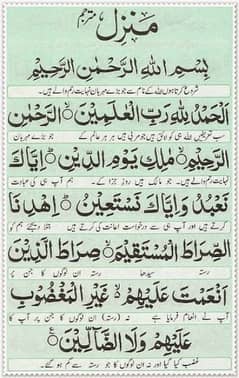 منزل مترجم
بِسْمِ اللهِ الرَّحْمٰنِ الرَّحِيْمِ
شروع کرتا ہوں اللہ کے نام سے جو بڑے مہربان نہایت رحم والے ہیں۔
اَلْحَمْدُ لِلّٰهِ رَبِّ الْعٰلَمِيْنَ ۙ الرَّحْمٰنِ
سب تعریفیں اللہ ہی کو لائق ہیں جو مربی ہیں ہر ہر عالم کے جو بڑے مہربان
الرَّحِيْمِ ۙ مٰلِكِ يَوْمِ الدِّيْنِ ۗ اِيَّاكَ
نہایت رحم والے ہیں۔ جو مالک ہیں روز جزا کے۔ ہم آپ ہی کی عبادت
نَعْبُدُ وَاِيَّاكَ نَسْتَعِيْنُ ۗ اِهْدِنَا
کرتے ہیں اور آپ ہی سے درخواست اعانت کی کرتے ہیں بتلا دیجئے ہم کو
الصِّرَاطَ الْمُسْتَقِيْمَ ۙ صِرَاطَ الَّذِيْنَ
رستہ سیدھا رستہ ان لوگوں کا جن پر
اَنْعَمْتَ عَلَيْهِمْ ۙ غَيْرِ الْمَغْضُوْبِ
آپ نے انعام فرمایا ہے نہ رستہ ان لوگوں کا جن پر آپ کا
عَلَيْهِمْ وَلَا الضَّآلِّيْنَ ۟
غضب کیا گیا اور نہ ان لوگوں کا جو رستہ سے گم ہو گئے۔